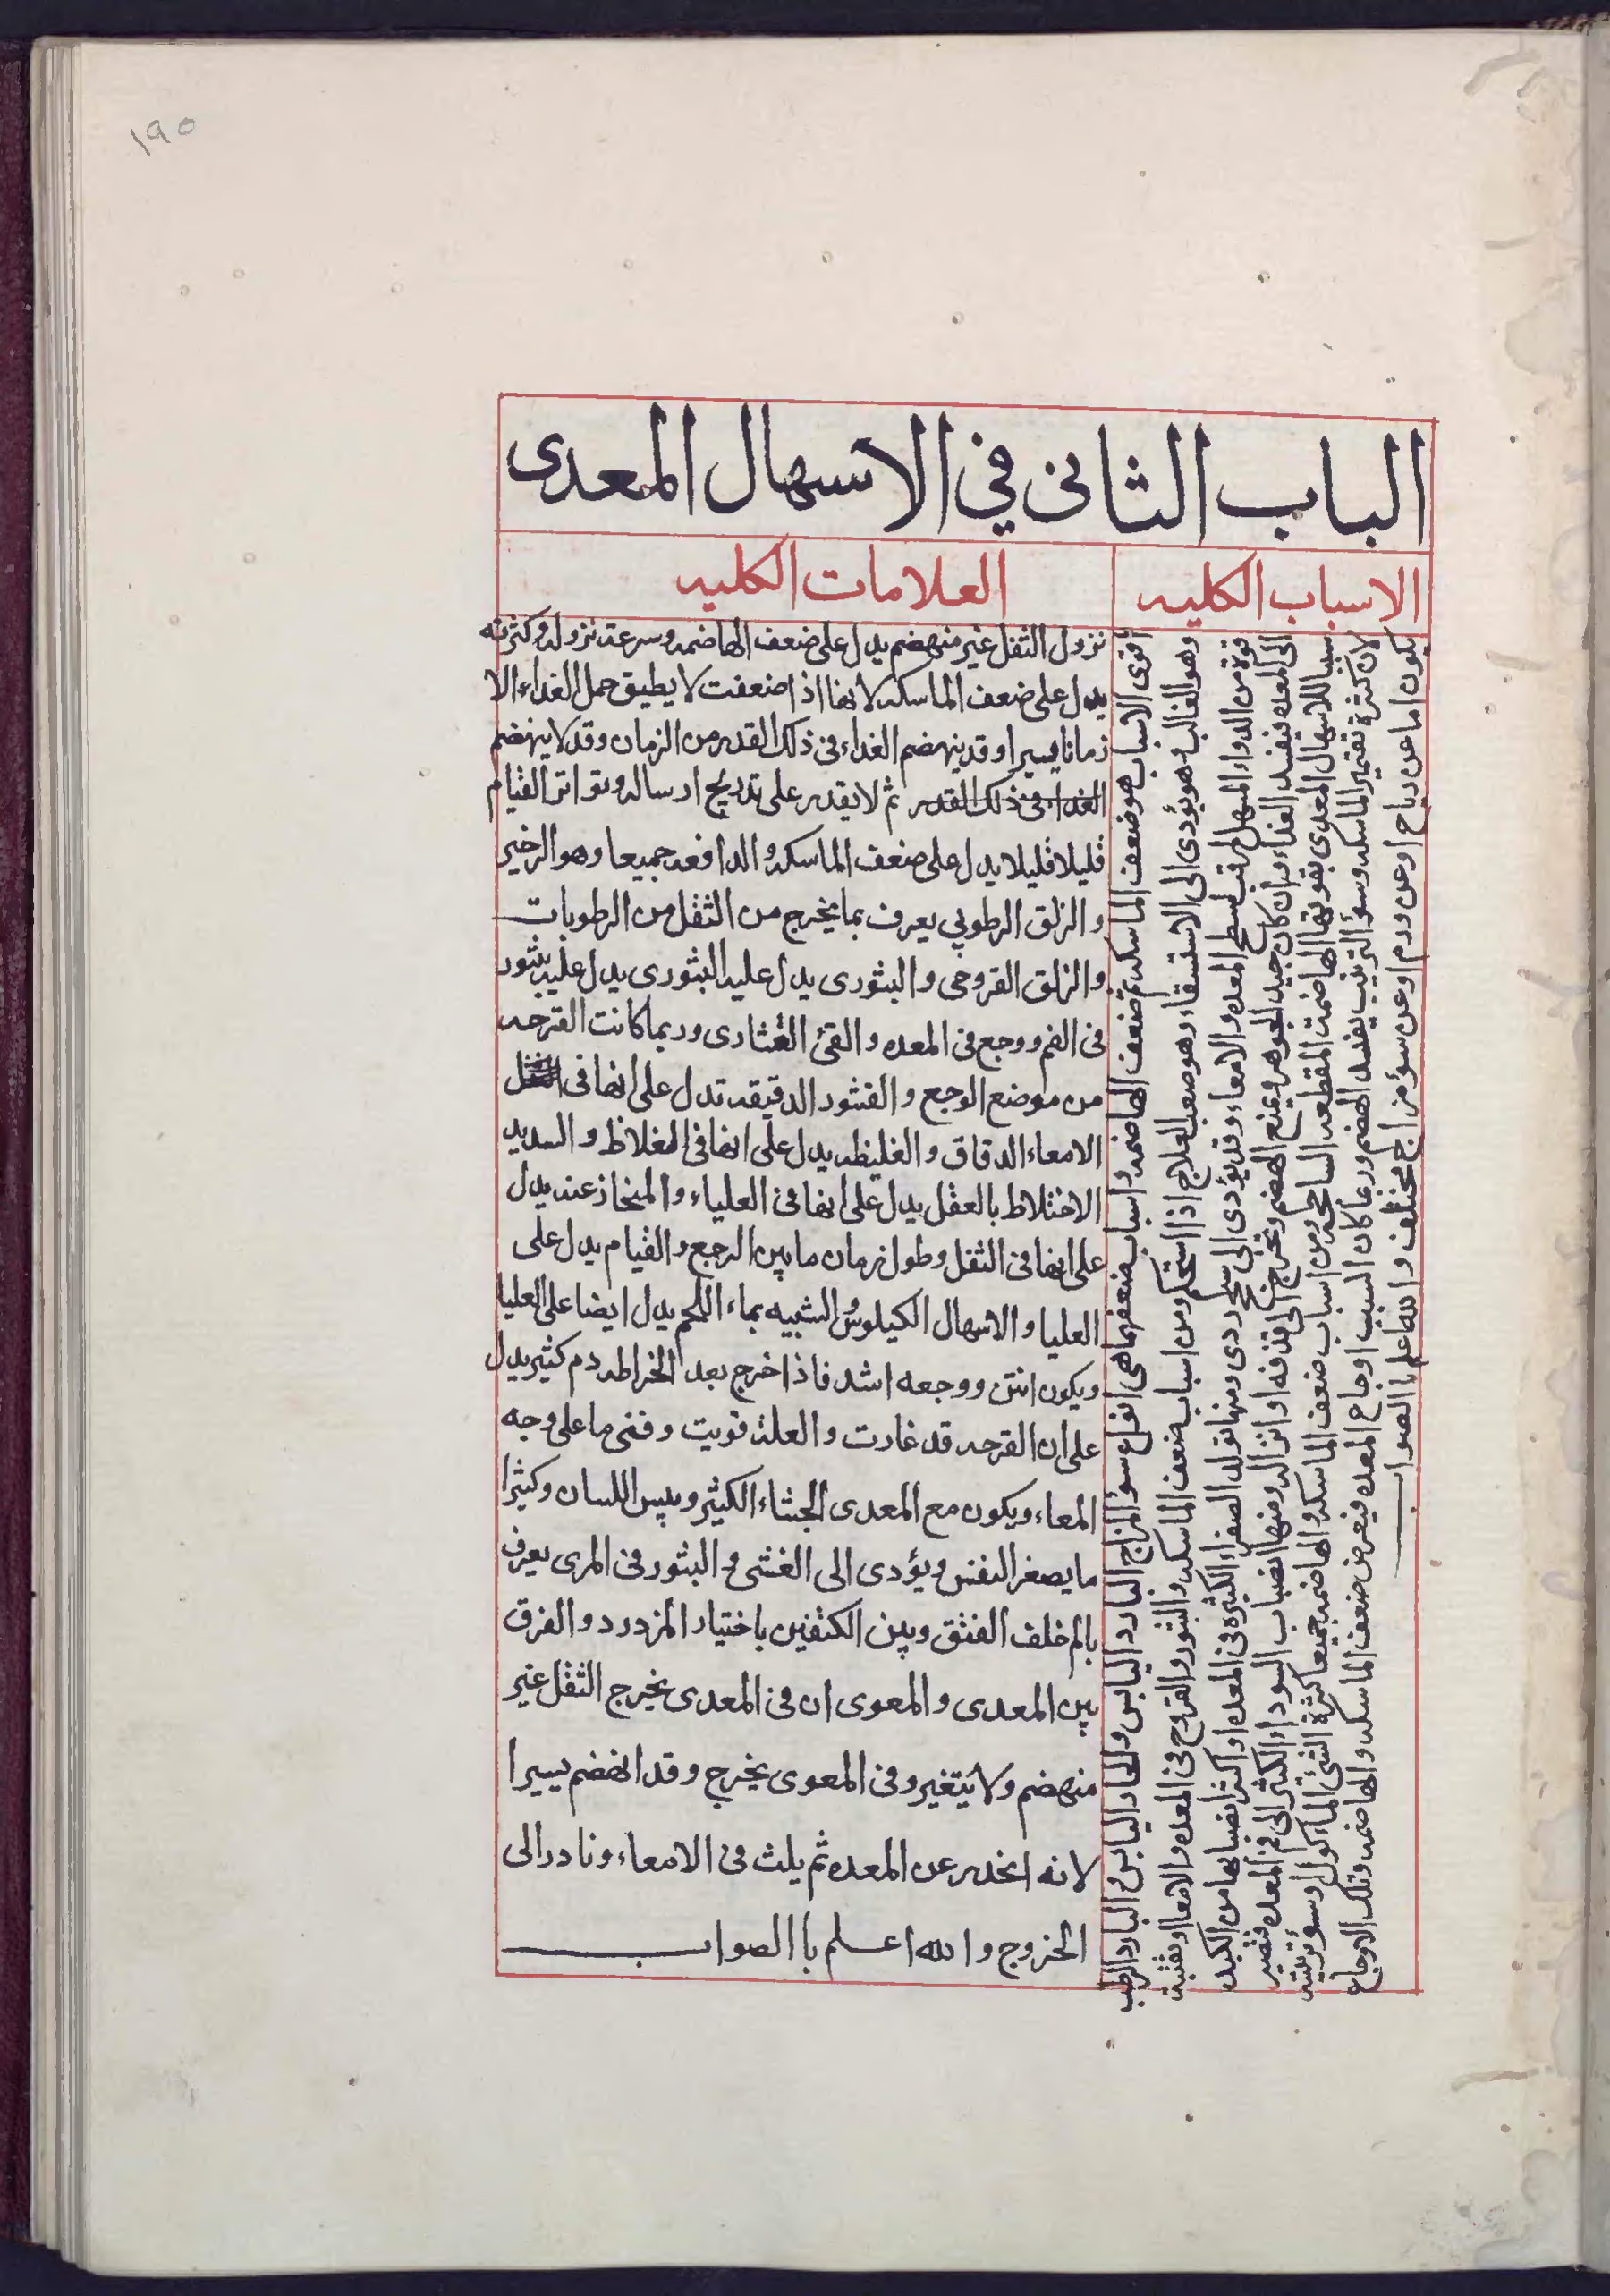 ١٩٥
الباب الثانى في الاسهال المعدى
الاسباب الكليه
العلامات الكليه
اقوى الاسباب هو ضعف الماسكه ثم ضعف الهاضمه واسباب ضعفهما هى انواع سؤ المزاج البارد اليابس والحار اليابس والبارد الرطب
وهو الغالب وهو يؤدى الى الاستسقاء وهو صعب العلاج اذا استحكم ومن اسباب ضعف الماسكه والبثور والقروح فى المعده والامعا او بقية
قوة من الدواء المسهل لزمت بسطح المعده والامعاء وقد يؤدى الى سحج ردى ومنها تولد الصفراء الكثيره فى المعده او اكثر انصبابها من الكبد
الى المعده فيفسد الغذاء وان كان جيد الجوهر ويمنع الهضم ويحرج الى قذفه او انزاله ومنها انصباب السوداء الكثير الى فم المعده فتصير
سببا للاسهال المعدى بقوتها الهاضمة المقطعه الساحجه ومن اسباب ضعف الماسكه والهاضمه جميعا كثرة الشئ الماكول وسوء ترتيبه
لان كثرة تقمير الماسكه وسؤ الترتيب يفسد الهضم وربما كان السبب اوجاع المعده فيعرض ضعف الماسكه والهاضمه وتلك الاوجاع
يكون اما عن رياح او عن ورم او عن سؤ مزاج مختلف والله اعلم با الصواب
نزول الثفل غير منهضم يدل على ضعف الهاضمه وسرعة نزوله وكثرته
يدل على ضعف الماسكه لانها اذا ضعفت لا يطيق حمل الغداء الا
زمانا يسيرا وقد ينهضم الغداء فى ذلك القدر من الزمان وقد لا ينهضم
الغداء فى ذلك القدر ثم لا يقدر على تدريج ارساله وتواتر القيام
قليلا قليلا يدل على ضعف الماسكه والدافعه جميعا وهو الزحير
والزلق الرطوبي يعرف بما يخرج من الثفل من الرطوبات
والزلق القروحى والبثورى يدل عليه البثورى يدل عليه بثور
فى الفم ووجع فى المعده والقئ الغثارى وربما كانت القرحه
من موضع الوجع والقشور الدقيقه تدل على انها فى
الامعاء الدقاق والغليظه يدل على انها فى الغلاظ والسديد
الاختلاط بالعقل يدل على انها فى العلياء والمنحاز عنه يدل
على انها فى الثفل وطول زمان ما بين الوجع والقيام يدل على
العليا والاسهال الكيلوس الشبيه بماء اللحم يدل ايضا على العليا
ويكون انتن ووجعه اشد فاذا خرج بعد الخراطه دم كثير يدل
على ان القرحه قد غارت والعلة قويت وفنى ما على وجه
المعاء ويكون مع المعدى الجثاء الكثير ويبس اللسان وكثيرا
ما يصغر النفس ويؤدى الى الغشى والبثور فى المرى يعرف
بالم خلف العنق وبين الكتفين باختيار المزدرد والفرق
بين المعدى والمعوى ان فى المعدى يخرج الثفل غير
منهضم ولا يتغير وفى المعوى يخرج وقد انهضم يسيرا
لانه انحدر عن المعده ثم يلث فى الامعاء ونادر الى
الخروج والله اعلم با الصواب